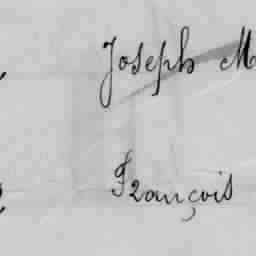 Joseph M
François